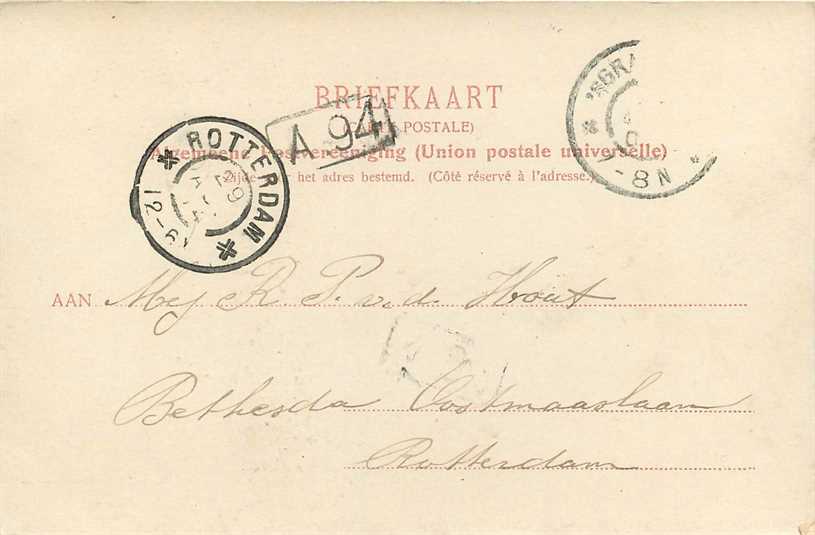 BRIEFKAART
(CARTE POSTALE)
Algemeene Postvereeniging (Union postale universelle)
Zijde het adres bestemd. (Côté réservé à l'adresse.)
A.94
ROTTERDAM
12-6
'sGRA
7-8N
AAN Mej R. P. v.d. Hout
Bethesda Oostmaaslaan
Rotterdam